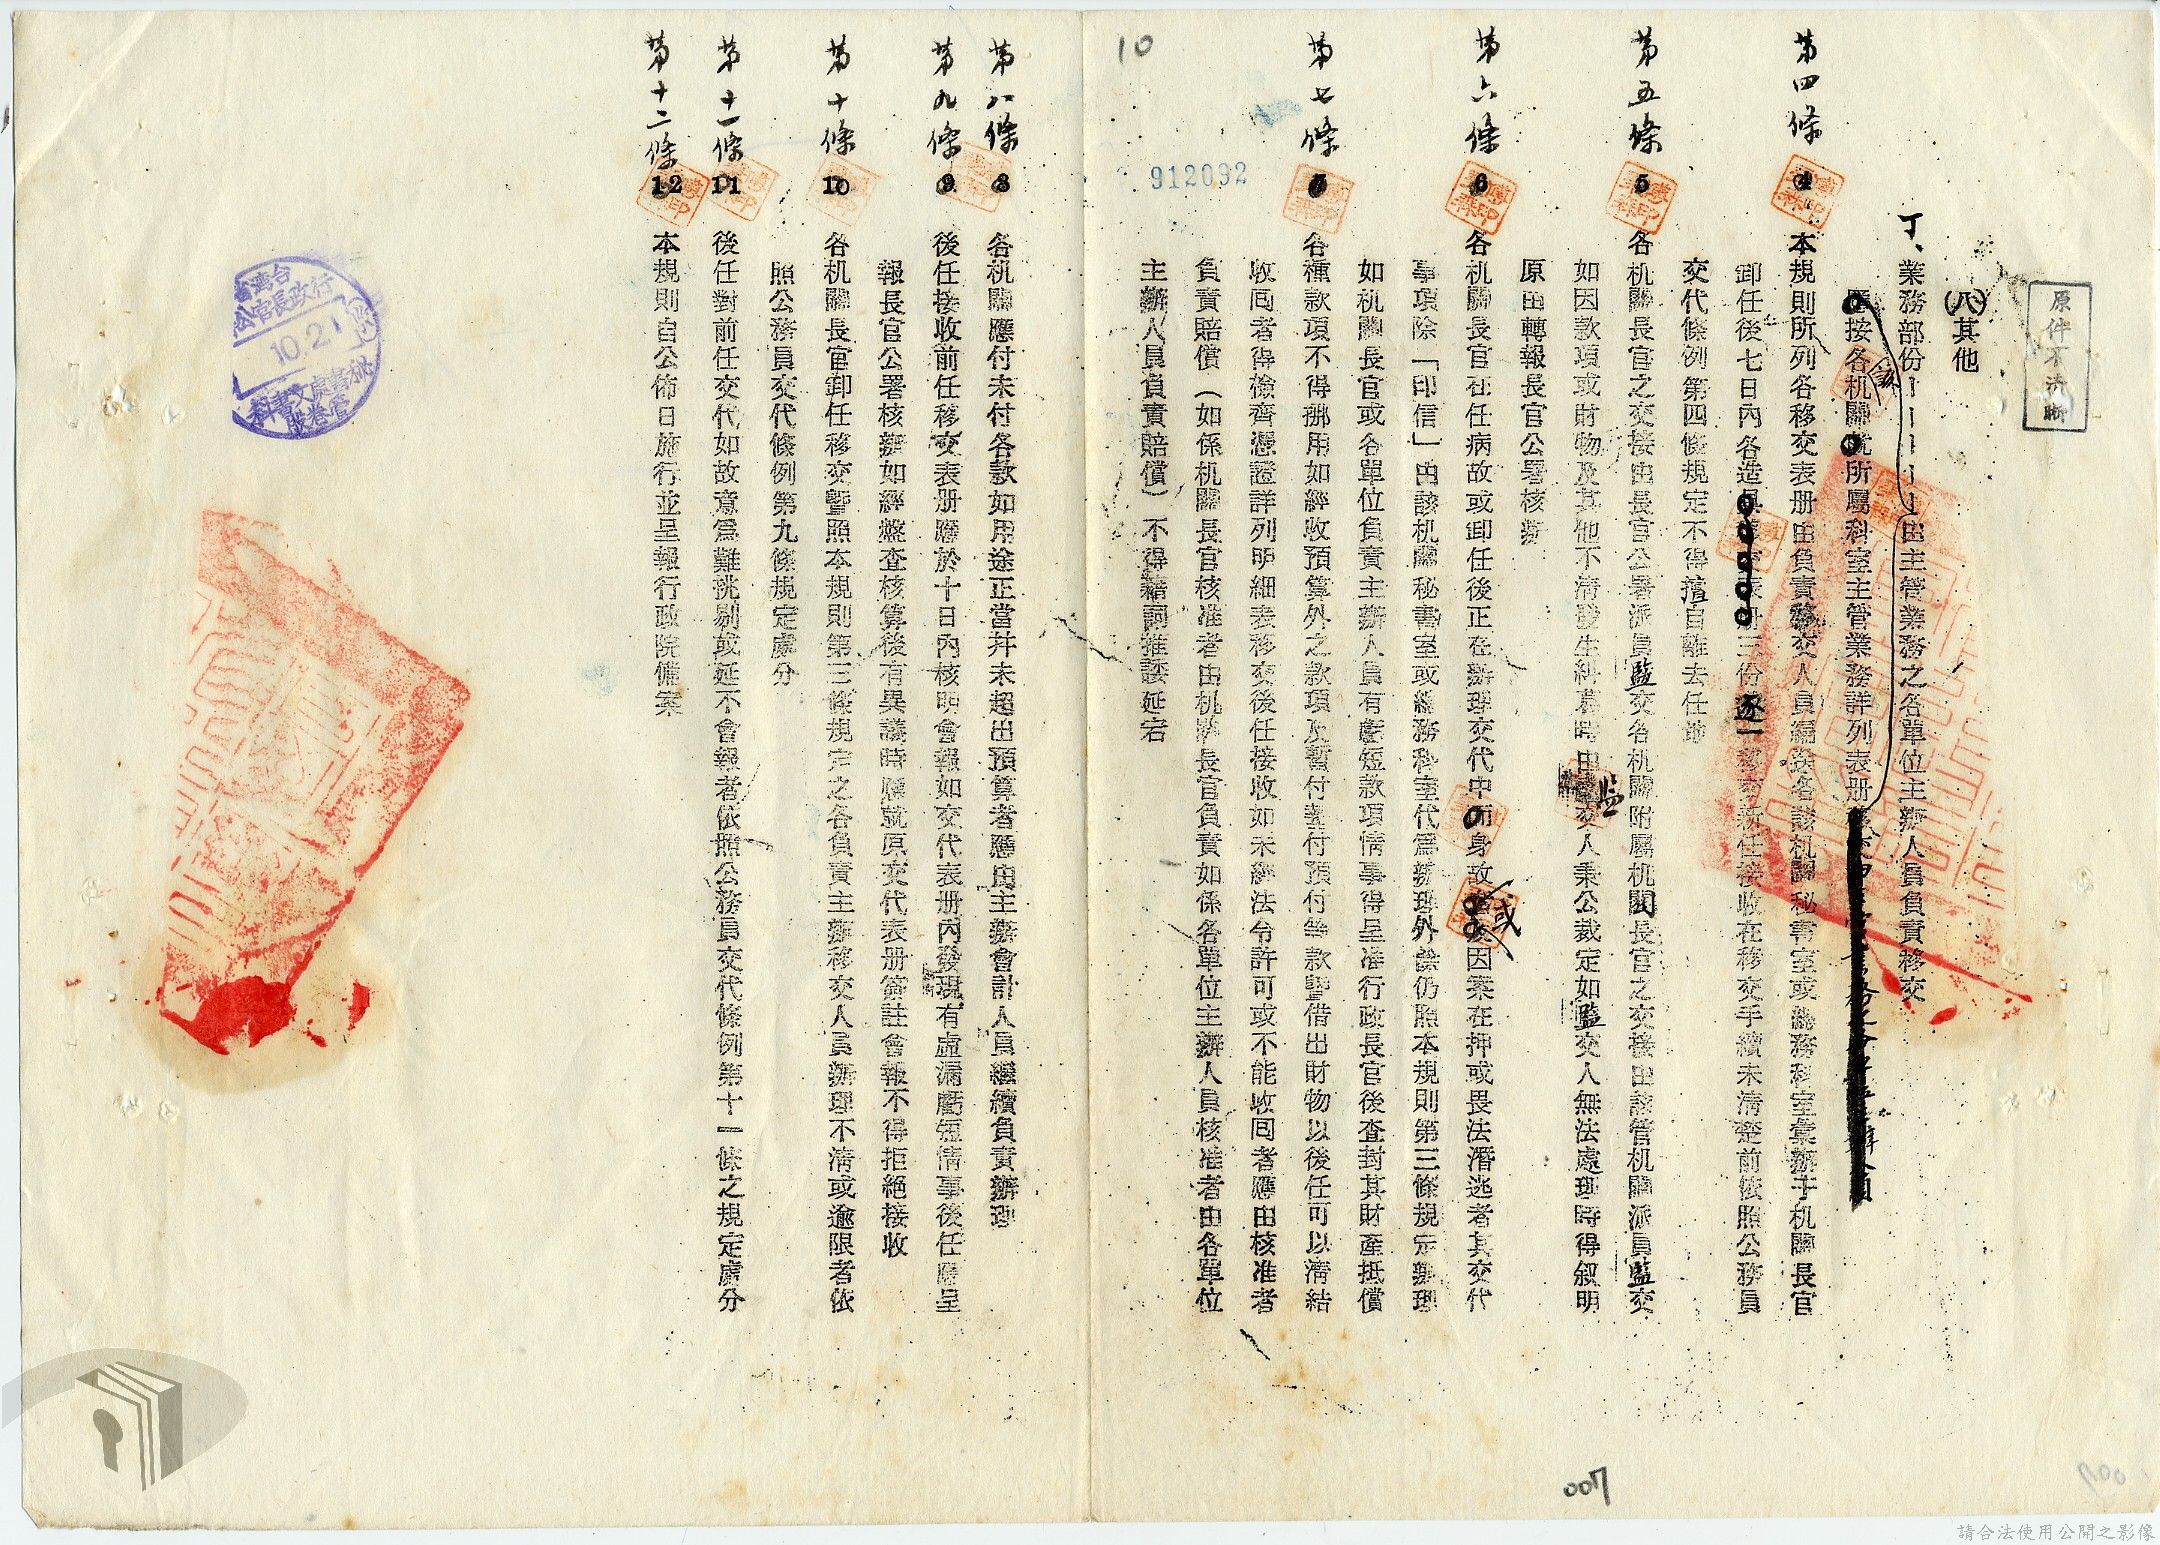 原件不清晰
(八)其他
丁、業務部份－－－－－由主管業務之各單位主辦人員負責移交
按各机關 所屬科室主管業務詳列表册
第四條 本規則所列各移交表册由負責移交人員編送各該机關秘書室或總務科室彙辦于机關長官
卸任後七日內各造具 表册三份逐一移交新任接收在移交手續未清楚前依照公務員
交代條例第四條規定不得擅自離去任地
第五條 5 各机關長官之交接由長官公署派員監交各机關附屬机關長官之交接由該管机關派員監交
如因款項或財物及其他不清發生糾葛時由監交人秉公裁定如監交人無法處理時得叙明
原由轉報長官公署核辦
第六條 6 各机關長官在任病故或卸任後正在辦理交代中 身故或因案在押或畏法潛逃者其交代
事項除「印信」由該机關秘書室或總務科室代爲辦理外餘仍照本規則第三條規定辦理
如机關長官或各單位負責主辦人員有虧短款項情事得呈准行政長官後查封其財產抵償
第七條 各種款項不得挪用如經收預算外之款項及暫付墊付預付等款暨借出財物以後任可以清結
收囘者得檢齊憑證詳列明細表移交後任接收如未經法令許可或不能收囘者應由核准者
負責賠償(如係机關長官核准者由机關長官負責如係各單位主辦人員核准者由各單位
主辦人員負責賠償)不得藉詞推諉延宕
10
912092
第八條 8 各机關應付未付各款如用途正當幷未超出預算者應由主辦會計人員繼續負責辦理
第九條 9 後任接收前任移交表册應於十日內核明會報如交代表册內發現有虛漏虧短情事後任應呈
報長官公署核辦如經盤查核算後有異議時應就原交代表册簽註會報不得拒絕接收
第十條 10 各机關長官卸任移交暨照本規則第三條規定之各負責主辦移交人員辦理不清或逾限者依
照公務員交代條例第九條規定處分
第十一條 11 後任對前任交代如故意爲難挑剔或延不會報者依照公務員交代條例第十一條之規定處分
第十二條 12 本規則自公佈日施行並呈報行政院備案
10.21
007
請合法使用公開之影像